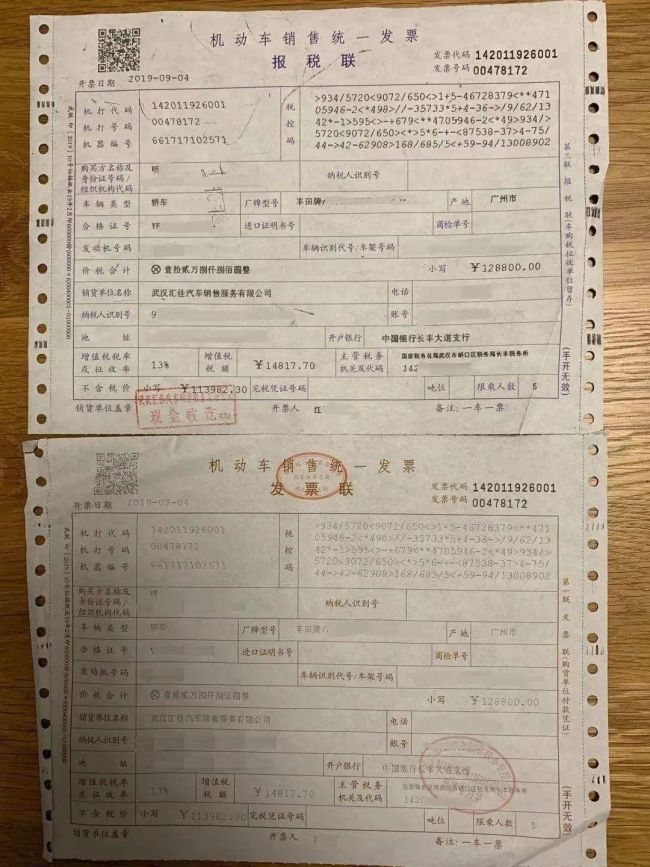 机动车销售统一发票
报税联
发票代码 142011926001
发票号码 00478172
开票日期 2019-09-04
机打代码 142011926001
机打号码 00478172
机器编号 661717102571
税控码
>934/5720<9072/650<>1+5-46728379<**471
05946-2<*498>//-35733*5+4-36->/9/62/13
42*-1>595<>-+679<**4705946-2<*49>934/>
5720<9072/650<>*5*6-+-<87538-37>4-75/5
44->42-62908>168/685/5<+59-94/13008902
购买方名称及身份证号码/组织机构代码 明
纳税人识别号
车辆类型 轿车 厂牌型号 丰田牌/ 产地 广州市
合格证号 YF 进口证明书号 商检单号
发动机号码 车辆识别代号/车架号码
价税合计 ⊗壹拾贰万捌仟捌佰圆整 小写 ￥128800.00
销货单位名称 武汉汇佳汽车销售服务有限公司 电话
纳税人识别号 9 账号
地址 开户银行 中国银行长丰大道支行
增值税税率或征收率 13% 增值税税额 ￥14817.70 主管税务机关及代码 国家税务总局武汉市硚口区税务局长丰税务所
142
不含税价 小写 ￥113982.30 完税凭证号码 吨位 限乘人数 5
销货单位盖章 开票人 备注：一车一票
现金收讫
第三联 报税联（车购税征收单位留存）
（手开无效）
机动车销售统一发票
发票联
发票代码 142011926001
发票号码 00478172
开票日期 2019-09-04
机打代码 142011926001
机打号码 00478172
机器编号 661717102571
税控码
>934/5720<9072/650<>1+5-46728379<**471
05946-2<*498>//-35733*5+4-36->/9/62/13
42*-1>595<>-+679<**4705946-2<*49>934/>
5720<9072/650<>*5*6-+-<87538-37>4-75/5
44->42-62908>168/685/5<+59-94/13008902
购买方名称及身份证号码/组织机构代码 明
纳税人识别号
车辆类型 轿车 厂牌型号 丰田牌/ 产地 广州市
合格证号 进口证明书号 商检单号
发动机号码 车辆识别代号/车架号码
价税合计 ⊗壹拾贰万捌仟捌佰圆整 小写 ￥128800.00
销货单位名称 武汉汇佳汽车销售服务有限公司 电话
纳税人识别号 账号
地址 开户银行 中国银行长丰大道支行
增值税税率或征收率 13% 增值税税额 ￥14817.70 主管税务机关及代码 国家税务总局武汉市硚口区税务局长丰税务所
142
不含税价 小写 ￥113982.30 完税凭证号码 吨位 限乘人数 5
销货单位盖章 开票人 备注：一车一票
第一联 发票联（购货单位付款凭证）
（手开无效）